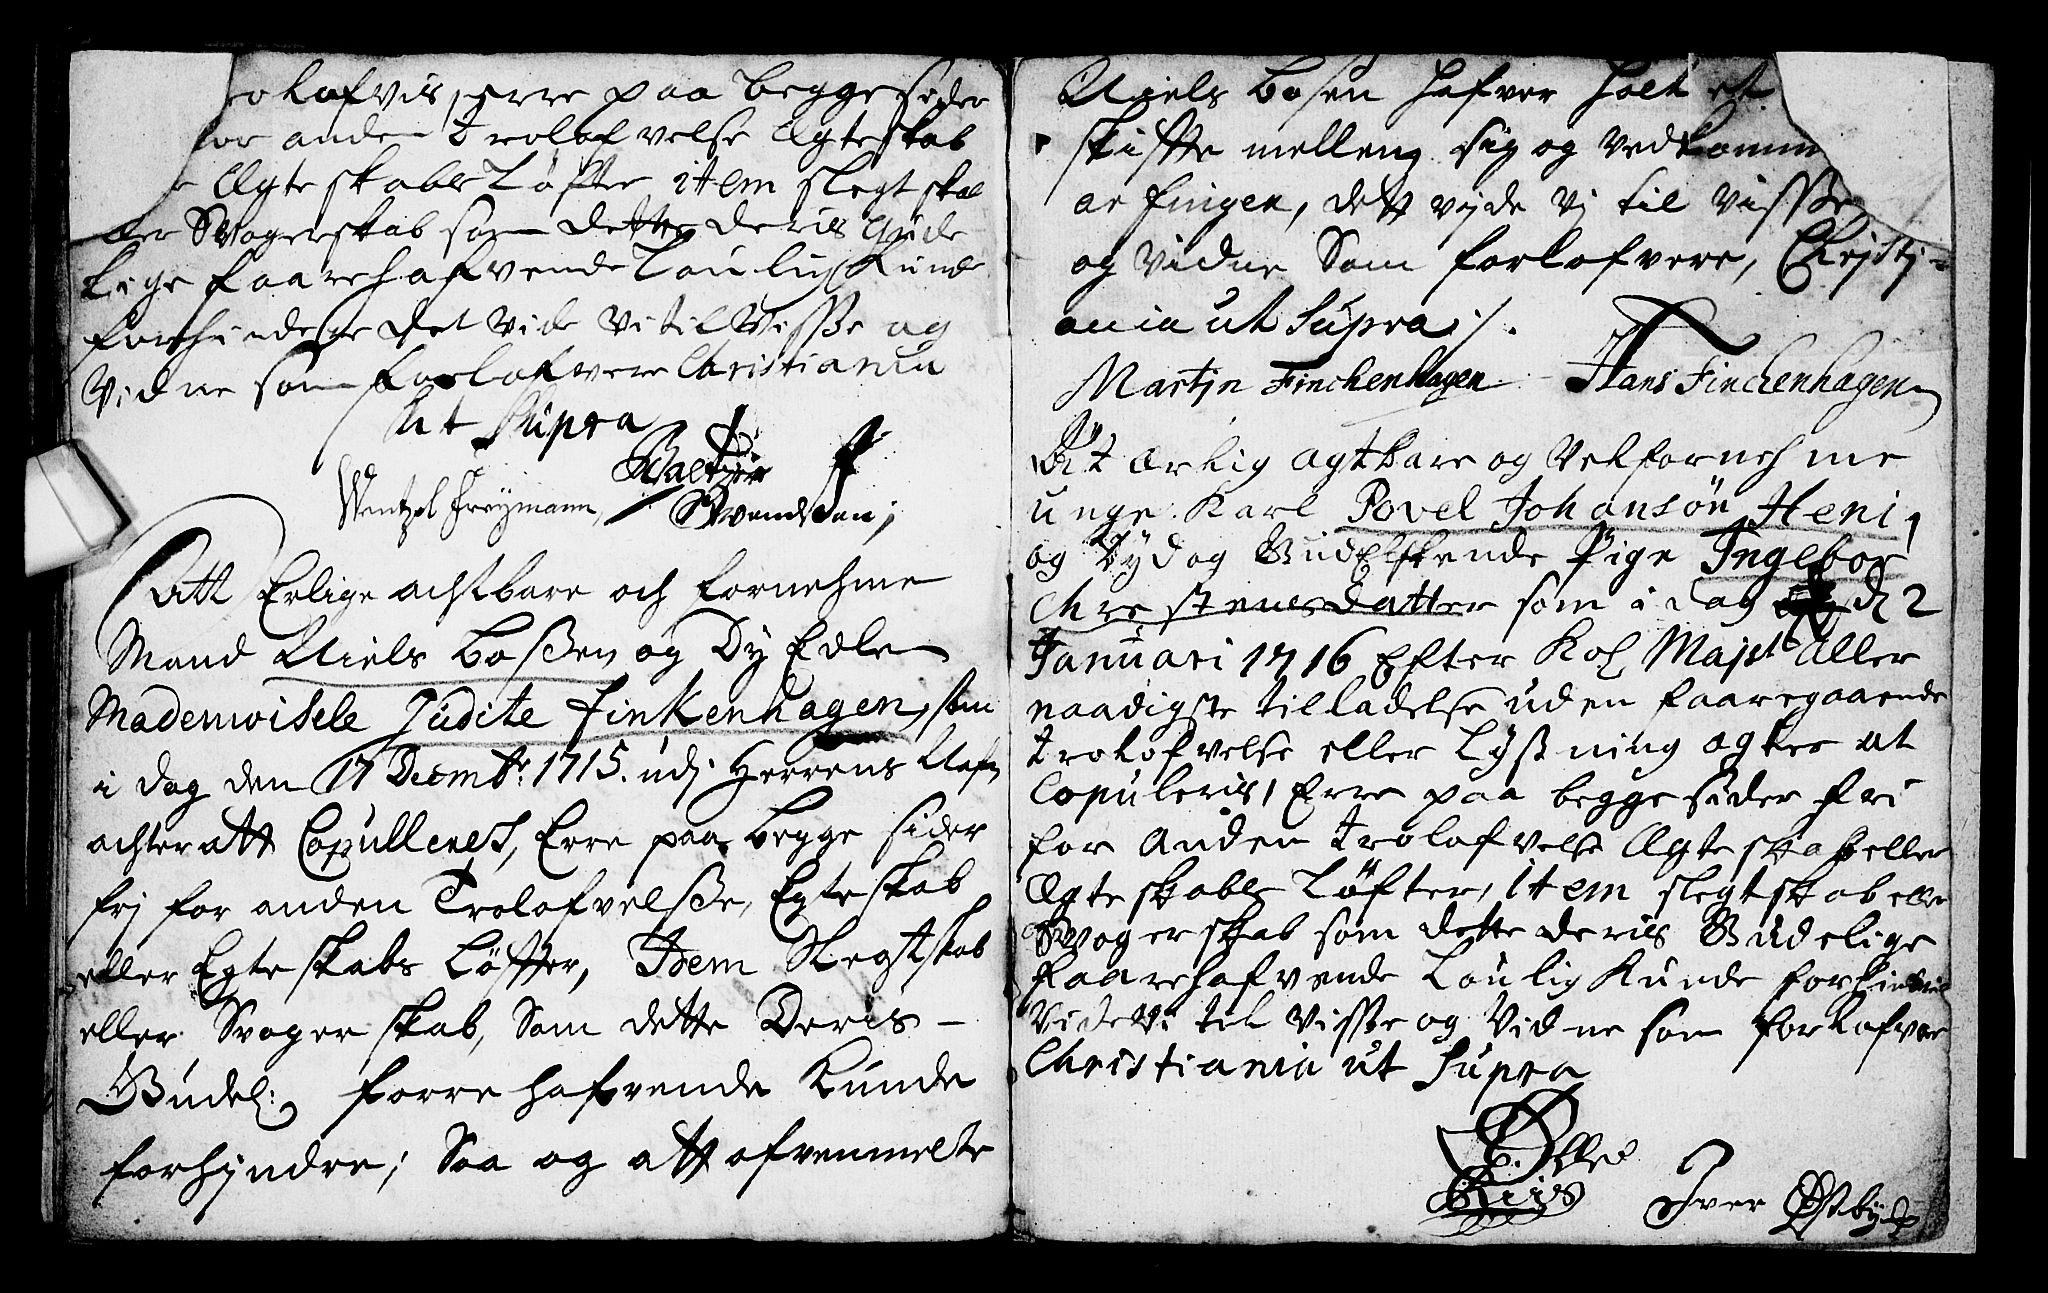 rolofvis, erre paa begge sider
for anden trolofvelse Ægteskab
Ægteskabs Løfter item slegtskab
ler Svogerskab som dette deris Gude
lige faarehafvende Loulig kunde
forhindere det vide vi til Visse og
Vidne som forlofvere Christiania
ut Supra
Wentzel Freÿmann, Baltzer
Svendsen;
Att Erlige achtbare och fornehme
Mand Niels Boßen og Dy Edle
Mademoisele Judite Finkenhagen, som
i dag den 17 Decmbr: 1715. udj Herrens Nafn
achter att Copullerest, Erre paa begge sider
frj for anden Trolofvelße, Egteskab
eller Egteskabs Løffter, Item Slegtskab
eller Svogerskab, Som dette Deris
Gudel: forrehafvende kunde
forhjndre; Saa og att ofvenmelte
Niels Bosen hafver holt et
skiffte mellem sig og vedkomm
arfinger, dett vide vj til visße
og vidne Som forlofvere, Christj-
ania ut Supra ./.
Martjn Finchenhagen Hans Finchenhagen
At ærlig agtbare og velfornehme
unge Karl Povel Johansøn Heni,
og Dyd og Gudelskende Pige Ingebor
Chrestensdatter som i dag d 2
Januari 1716 Efter Kol Majst aller
naadigste tilladelse uden faaregaaende
trolofvelse eller Lyßning agter at
Copuleris, Erre paa begge sider fri
for anden trolofvelse Ægteskab eller
Ægteskabs Løfter, item slegtskab eller
Svogerskab som dette deris Gudelige
faarehafvende Loulig kunde forhindre
Vide vi til Visse og Vidne som forlofvere
Christiania ut Supra
Riis Iver Østbÿe